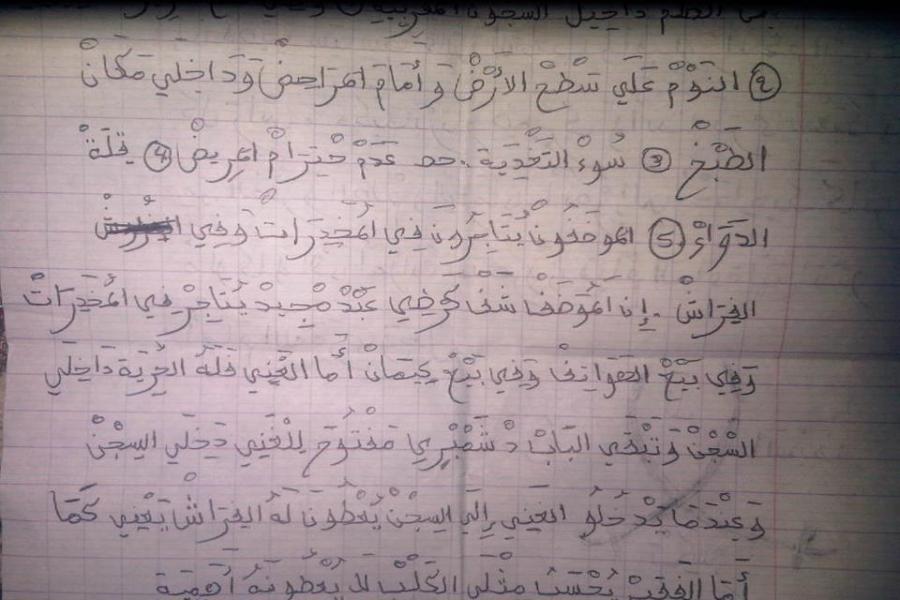 داخيل السجون المغربية
② النَوْمْ عَلَي سَطْحْ الأرْضْ وَ أَمَامَ المرَاحِضْ وَ دَاخِلي مَكَانْ
الطَبْخْ ③ سُوءْ التَغْدِيَة . عَدَمْ حْتِرَامْ المرِيضْ ④ قِلَةْ
الدَوَاءْ ⑤ الموضفُونْ يُتَاجِرُونَ فِي المُخَدِرَاتْ وَفِي
الفِرَاشْ . إِنَ المُوَضَفْ عَبْدْ مَجِيدْ يُتَاجِرْ فِي المُخَدِرَاتْ
وَفِي بَيْعْ الهَوَاتِفْ وَفِي بَيْعْ أَما الغَنِي فَلَهُ الحُرِيَة دَاخِلي
السْجْنْ وَتَبْقَي البَابْ دْ شَمْبْرِي مَفْتُوحْ لِلْغَنِي دَخلي السِجْنْ
وَعِنْدَمَا يَدْخُلُو الغنِي إِلَي السِجْنْ يُعْطُونَ لَهُ الفِرَاشْ يَعْنِي كَمَا
أَمَا الفَقِيرْ يُحْسَبْ مِثْلي الكَلْبْ لاَ يُعْطُونَهُ أَهَمِيَة